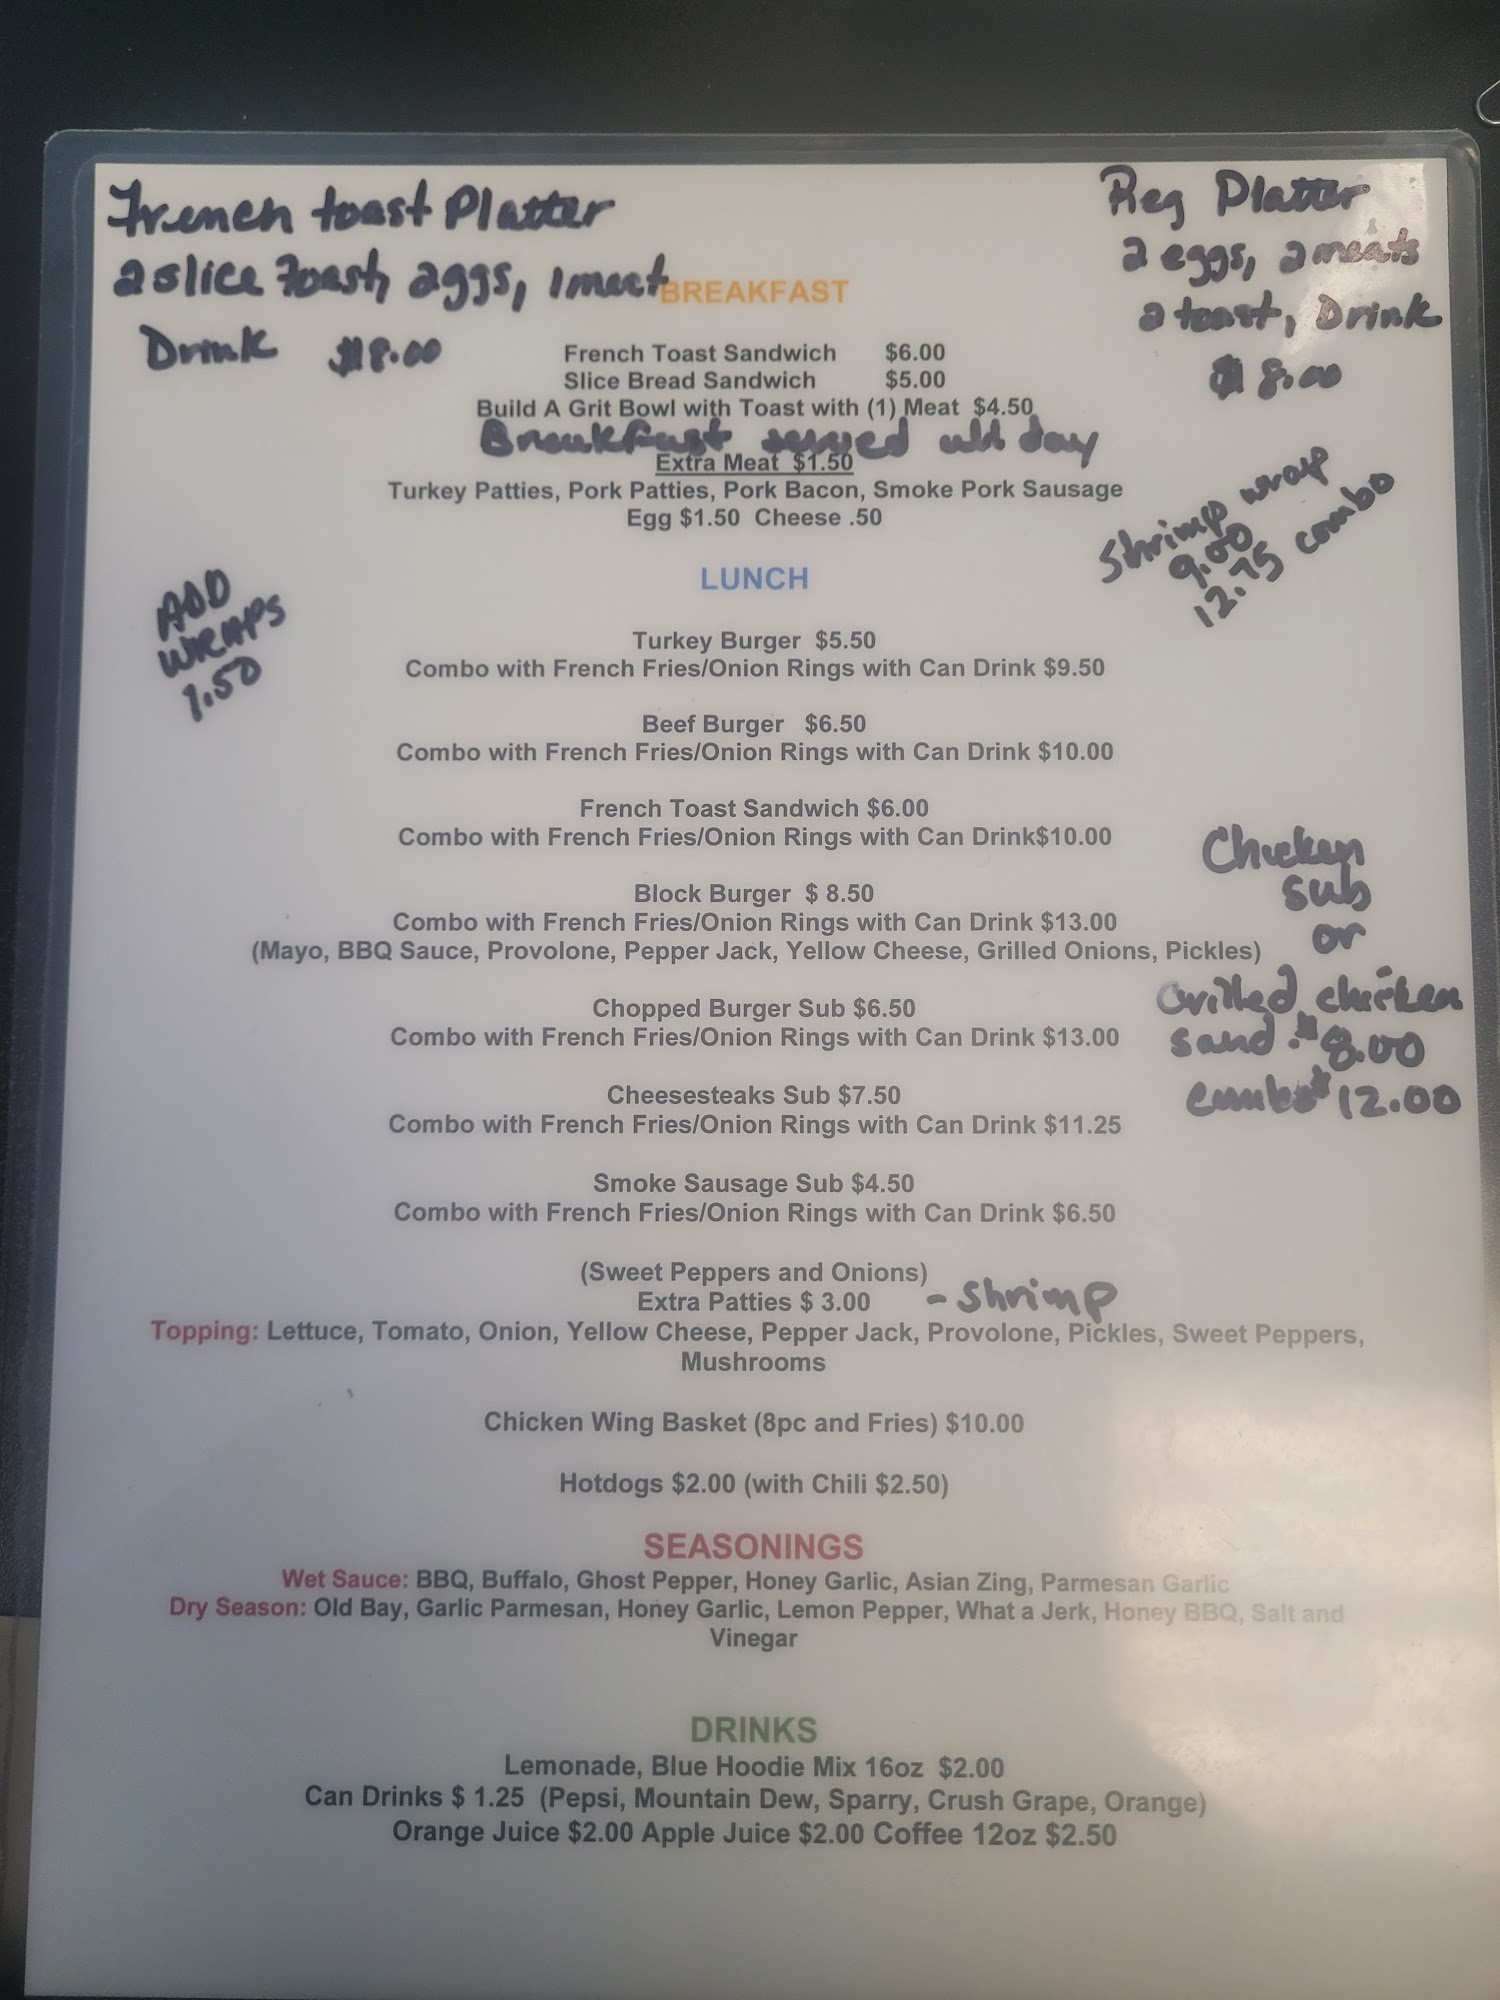 French toast Platter
2 slice toast, 2 eggs, 1 meat
Drink $18.00
Reg Platter
2 eggs, 2 meats
2 toast, Drink
$18.00
BREAKFAST
French Toast Sandwich $6.00
Slice Bread Sandwich $5.00
Build A Grit Bowl with Toast with (1) Meat $4.50
Breakfast served all day
Extra Meat $1.50
Turkey Patties, Pork Patties, Pork Bacon, Smoke Pork Sausage
Egg $1.50 Cheese .50
Shrimp wrap
9.00
12.75 combo
ADD
WRAPS
1.50
LUNCH
Turkey Burger $5.50
Combo with French Fries/Onion Rings with Can Drink $9.50
Beef Burger $6.50
Combo with French Fries/Onion Rings with Can Drink $10.00
French Toast Sandwich $6.00
Combo with French Fries/Onion Rings with Can Drink$10.00
Block Burger $ 8.50
Combo with French Fries/Onion Rings with Can Drink $13.00
(Mayo, BBQ Sauce, Provolone, Pepper Jack, Yellow Cheese, Grilled Onions, Pickles)
Chopped Burger Sub $6.50
Combo with French Fries/Onion Rings with Can Drink $13.00
Chicken
sub
or
Grilled chicken
sand. $8.00
combo $12.00
Cheesesteaks Sub $7.50
Combo with French Fries/Onion Rings with Can Drink $11.25
Smoke Sausage Sub $4.50
Combo with French Fries/Onion Rings with Can Drink $6.50
(Sweet Peppers and Onions)
Extra Patties $ 3.00 - shrimp
Topping: Lettuce, Tomato, Onion, Yellow Cheese, Pepper Jack, Provolone, Pickles, Sweet Peppers,
Mushrooms
Chicken Wing Basket (8pc and Fries) $10.00
Hotdogs $2.00 (with Chili $2.50)
SEASONINGS
Wet Sauce: BBQ, Buffalo, Ghost Pepper, Honey Garlic, Asian Zing, Parmesan Garlic
Dry Season: Old Bay, Garlic Parmesan, Honey Garlic, Lemon Pepper, What a Jerk, Honey BBQ, Salt and
Vinegar
DRINKS
Lemonade, Blue Hoodie Mix 16oz $2.00
Can Drinks $ 1.25 (Pepsi, Mountain Dew, Sparry, Crush Grape, Orange)
Orange Juice $2.00 Apple Juice $2.00 Coffee 12oz $2.50